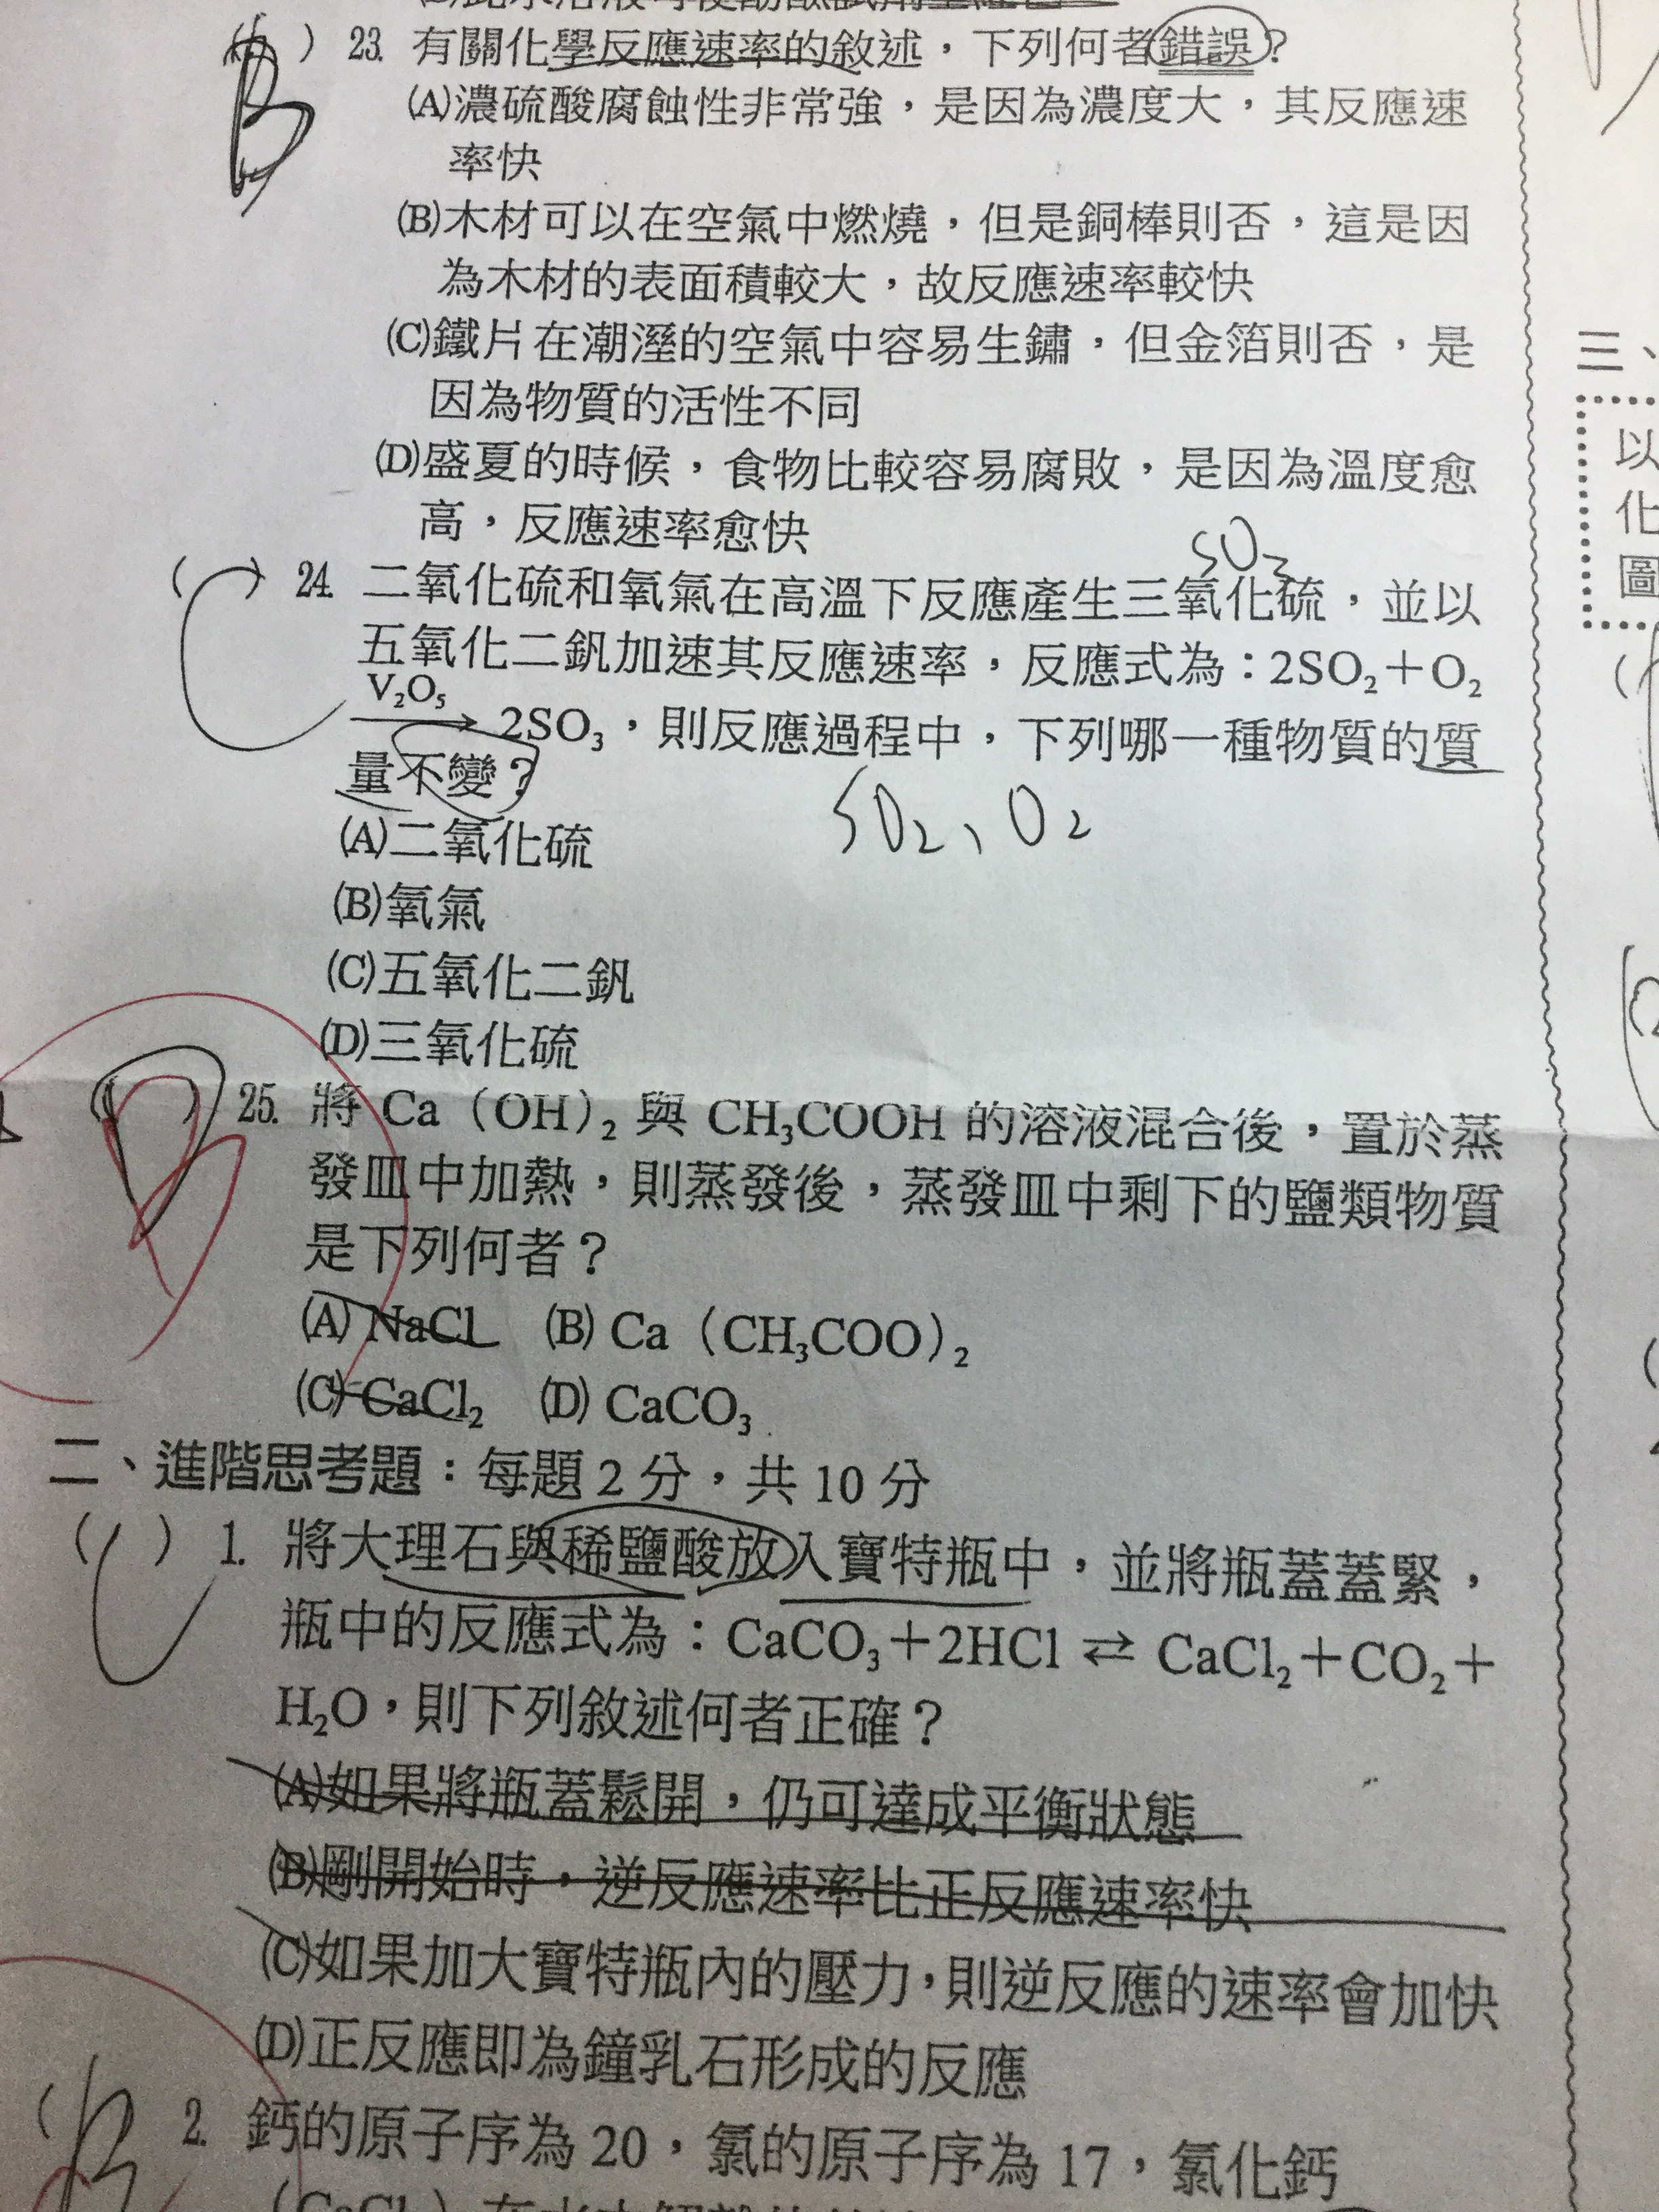 B ( ) 23. 有關化學反應速率的敘述，下列何者錯誤？
(A)濃硫酸腐蝕性非常強，是因為濃度大，其反應速
率快
(B)木材可以在空氣中燃燒，但是銅棒則否，這是因
為木材的表面積較大，故反應速率較快
(C)鐵片在潮溼的空氣中容易生鏽，但金箔則否，是
因為物質的活性不同
(D)盛夏的時候，食物比較容易腐敗，是因為溫度愈
高，反應速率愈快
SO₃
(C) 24. 二氧化硫和氧氣在高溫下反應產生三氧化硫，並以
五氧化二釩加速其反應速率，反應式為：2SO₂＋O₂
V₂O₅
→ 2SO₃，則反應過程中，下列哪一種物質的質
量不變？
SO₂、O₂
(A)二氧化硫
(B)氧氣
(C)五氧化二釩
(D)三氧化硫
( ) 25. 將 Ca（OH）₂ 與 CH₃COOH 的溶液混合後，置於蒸
發皿中加熱，則蒸發後，蒸發皿中剩下的鹽類物質
是下列何者？
(A) NaCl (B) Ca（CH₃COO）₂
(C) CaCl₂ (D) CaCO₃
二、進階思考題：每題 2 分，共 10 分
(C) 1. 將大理石與稀鹽酸放入寶特瓶中，並將瓶蓋蓋緊，
瓶中的反應式為：CaCO₃＋2HCl ⇄ CaCl₂＋CO₂＋
H₂O，則下列敘述何者正確？
(A)如果將瓶蓋鬆開，仍可達成平衡狀態
(B)剛開始時，逆反應速率比正反應速率快
(C)如果加大寶特瓶內的壓力，則逆反應的速率會加快
(D)正反應即為鐘乳石形成的反應
( ) 2. 鈣的原子序為 20，氯的原子序為 17，氯化鈣
三、
以
化
圖